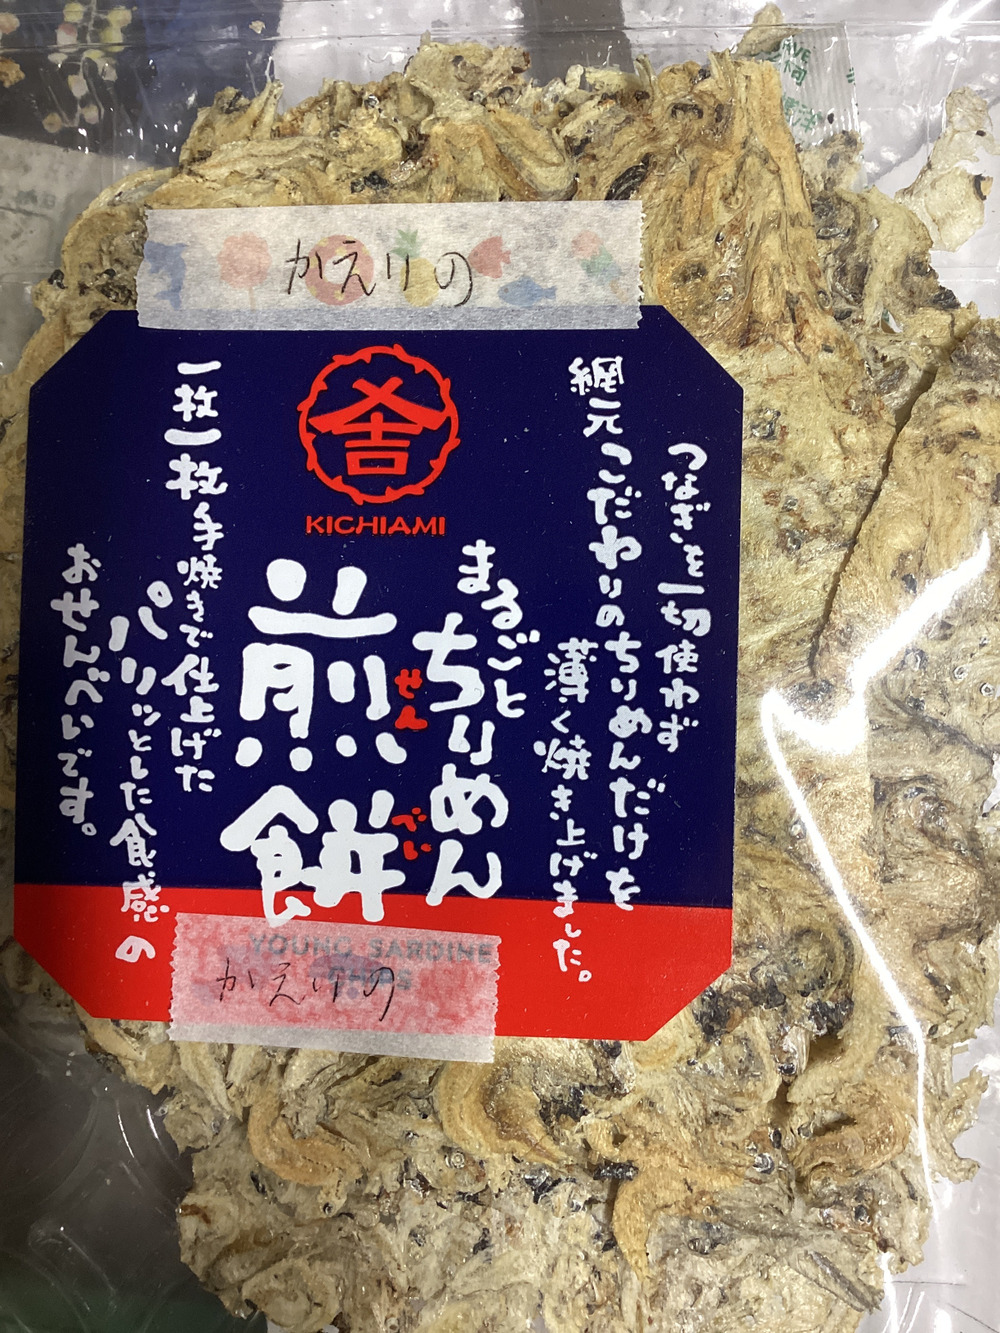 かえりの
つなぎを一切使わず
網元こだわりのちりめんだけを
薄く焼き上げました。
KICHIAMI
まるごと
ちりめん
煎餅
せんべい
一枚一枚手焼きで仕上げた
パリッとした食感の
おせんべいです。
YOUNG SARDINE
かえりの